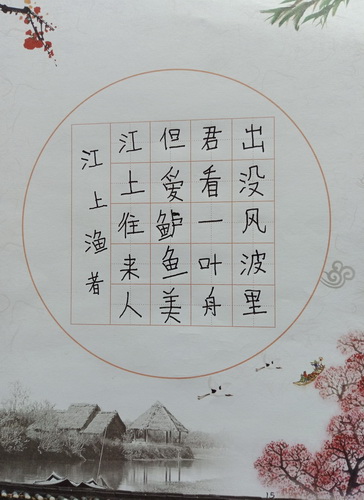 江上渔者
江上往来人
但爱鲈鱼美
君看一叶舟
出没风波里
15